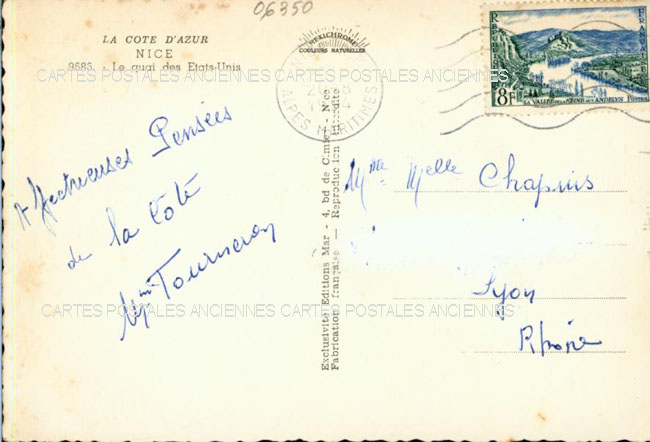 06350
LA COTE D'AZUR
NICE
9585. Le quai des Etats-Unis
HEXICHROME
COULEURS NATURELLES
ALPES MARITIMES
REPUBLIQUE FRANCAISE
8F
LA VALLÉE DE LA SEINE AUX ANDELYS POSTES
CARTES POSTALES ANCIENNES CARTES POSTALES ANCIENNES
Affectueuses Pensées
de la Côte
Mme Tourneron
Exclusivité Editions Mar - 4, bd de Cimiez - Nice
Fabrication française — Reproduction Interdite
Mme Melle Chapuis
Lyon
Rhône
CARTES POSTALES ANCIENNES CARTES POSTALES ANCIENNES